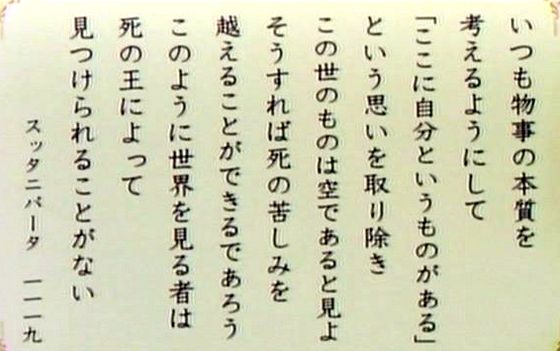 いつも物事の本質を
考えるようにして
「ここに自分というものがある」
という思いを取り除き
この世のものは空であると見よ
そうすれば死の苦しみを
越えることができるであろう
このように世界を見る者は
死の王によって
見つけられることがない
スッタニパータ 一一一九